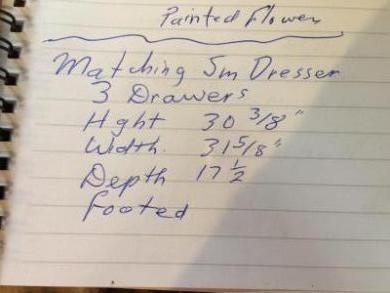 Painted Flower
Matching Sm Dresser
3 Drawers
Hght 30 3/8"
Width. 31 5/8"
Depth 17 1/2
footed